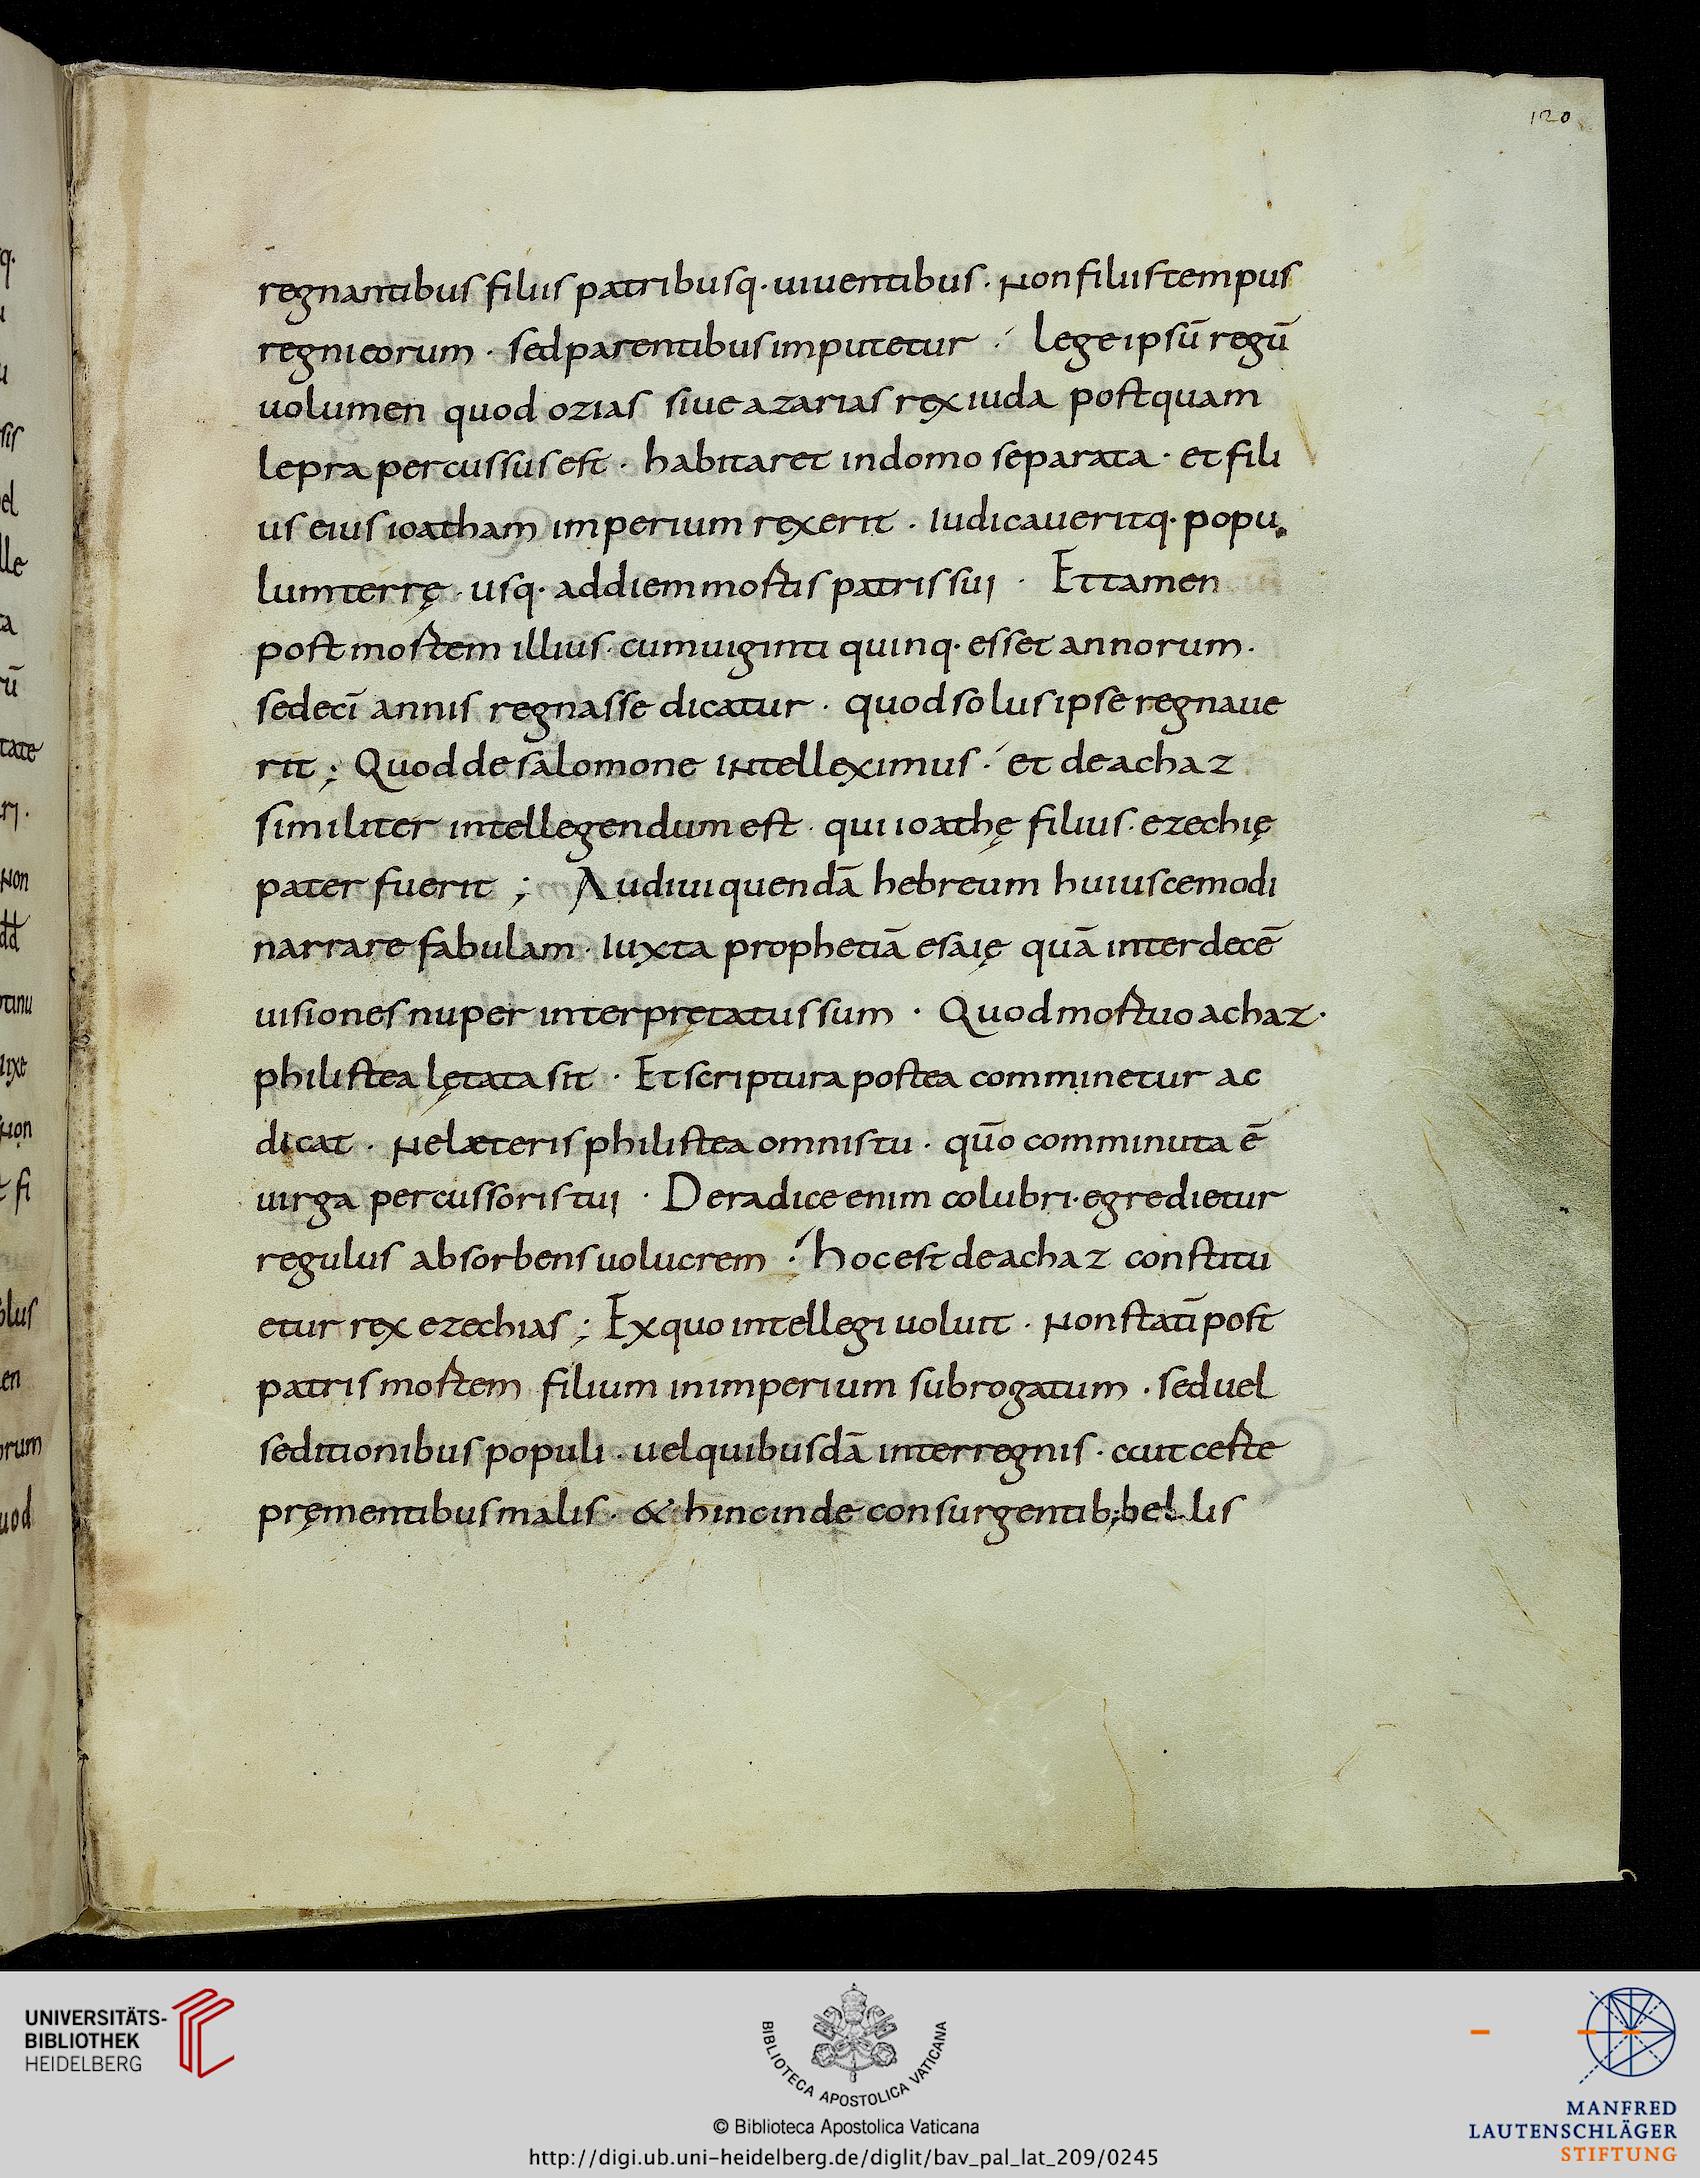 120
regnantibus filiis patribusq· uiuentibus · Non filiis tempus
regni eorum · sed parentibus imputetur ·́ lege ipsū regū
uolumen quod ozias siue azarias rex iuda postquam
lepra percussus est · habitaret in domo separata · et fili
us eius ioatham imperium rexerit · iudicaueritq· popu
lum terrę · usq· ad diem mortis patris sui · Et tamen
post mortem illius · cum uiginti quinq· esset annorum ·
sedecī annis regnasse dicatur · quod solus ipse regnaue
rit ; Quod de salomone intelleximus ·́ et de achaz
similiter intellegendum est · qui ioathę filius · ezechię
pater fuerit ; Audiui quendā hebreum huiuscemodi
narrare fabulam · iuxta prophetiā esaię quā inter decē
uisiones nuper interpretatus sum · Quod mortuo achaz ·
philistea lętata sit · Et scriptura postea comminetur ac
dicat · Ne læteris philistea omnis tu · qūo comminuta ē
uirga percussoris tui · De radice enim colubri · egredietur
regulus absorbens uolucrem ·́ hoc est de achaz constitu
etur rex ezechias ; Ex quo intellegi uoluit · Non statī post
patris mortem filium in imperium subrogatum · sed uel
seditionibus populi · uel quibusdā interregnis · aut certe
pręmentibus malis · & hinc inde consurgentib; bellis
UNIVERSITÄTS-
BIBLIOTHEK
HEIDELBERG
BIBLIOTECA APOSTOLICA VATICANA
© Biblioteca Apostolica Vaticana
http://digi.ub.uni-heidelberg.de/diglit/bav_pal_lat_209/0245
MANFRED
LAUTENSCHLÄGER
STIFTUNG